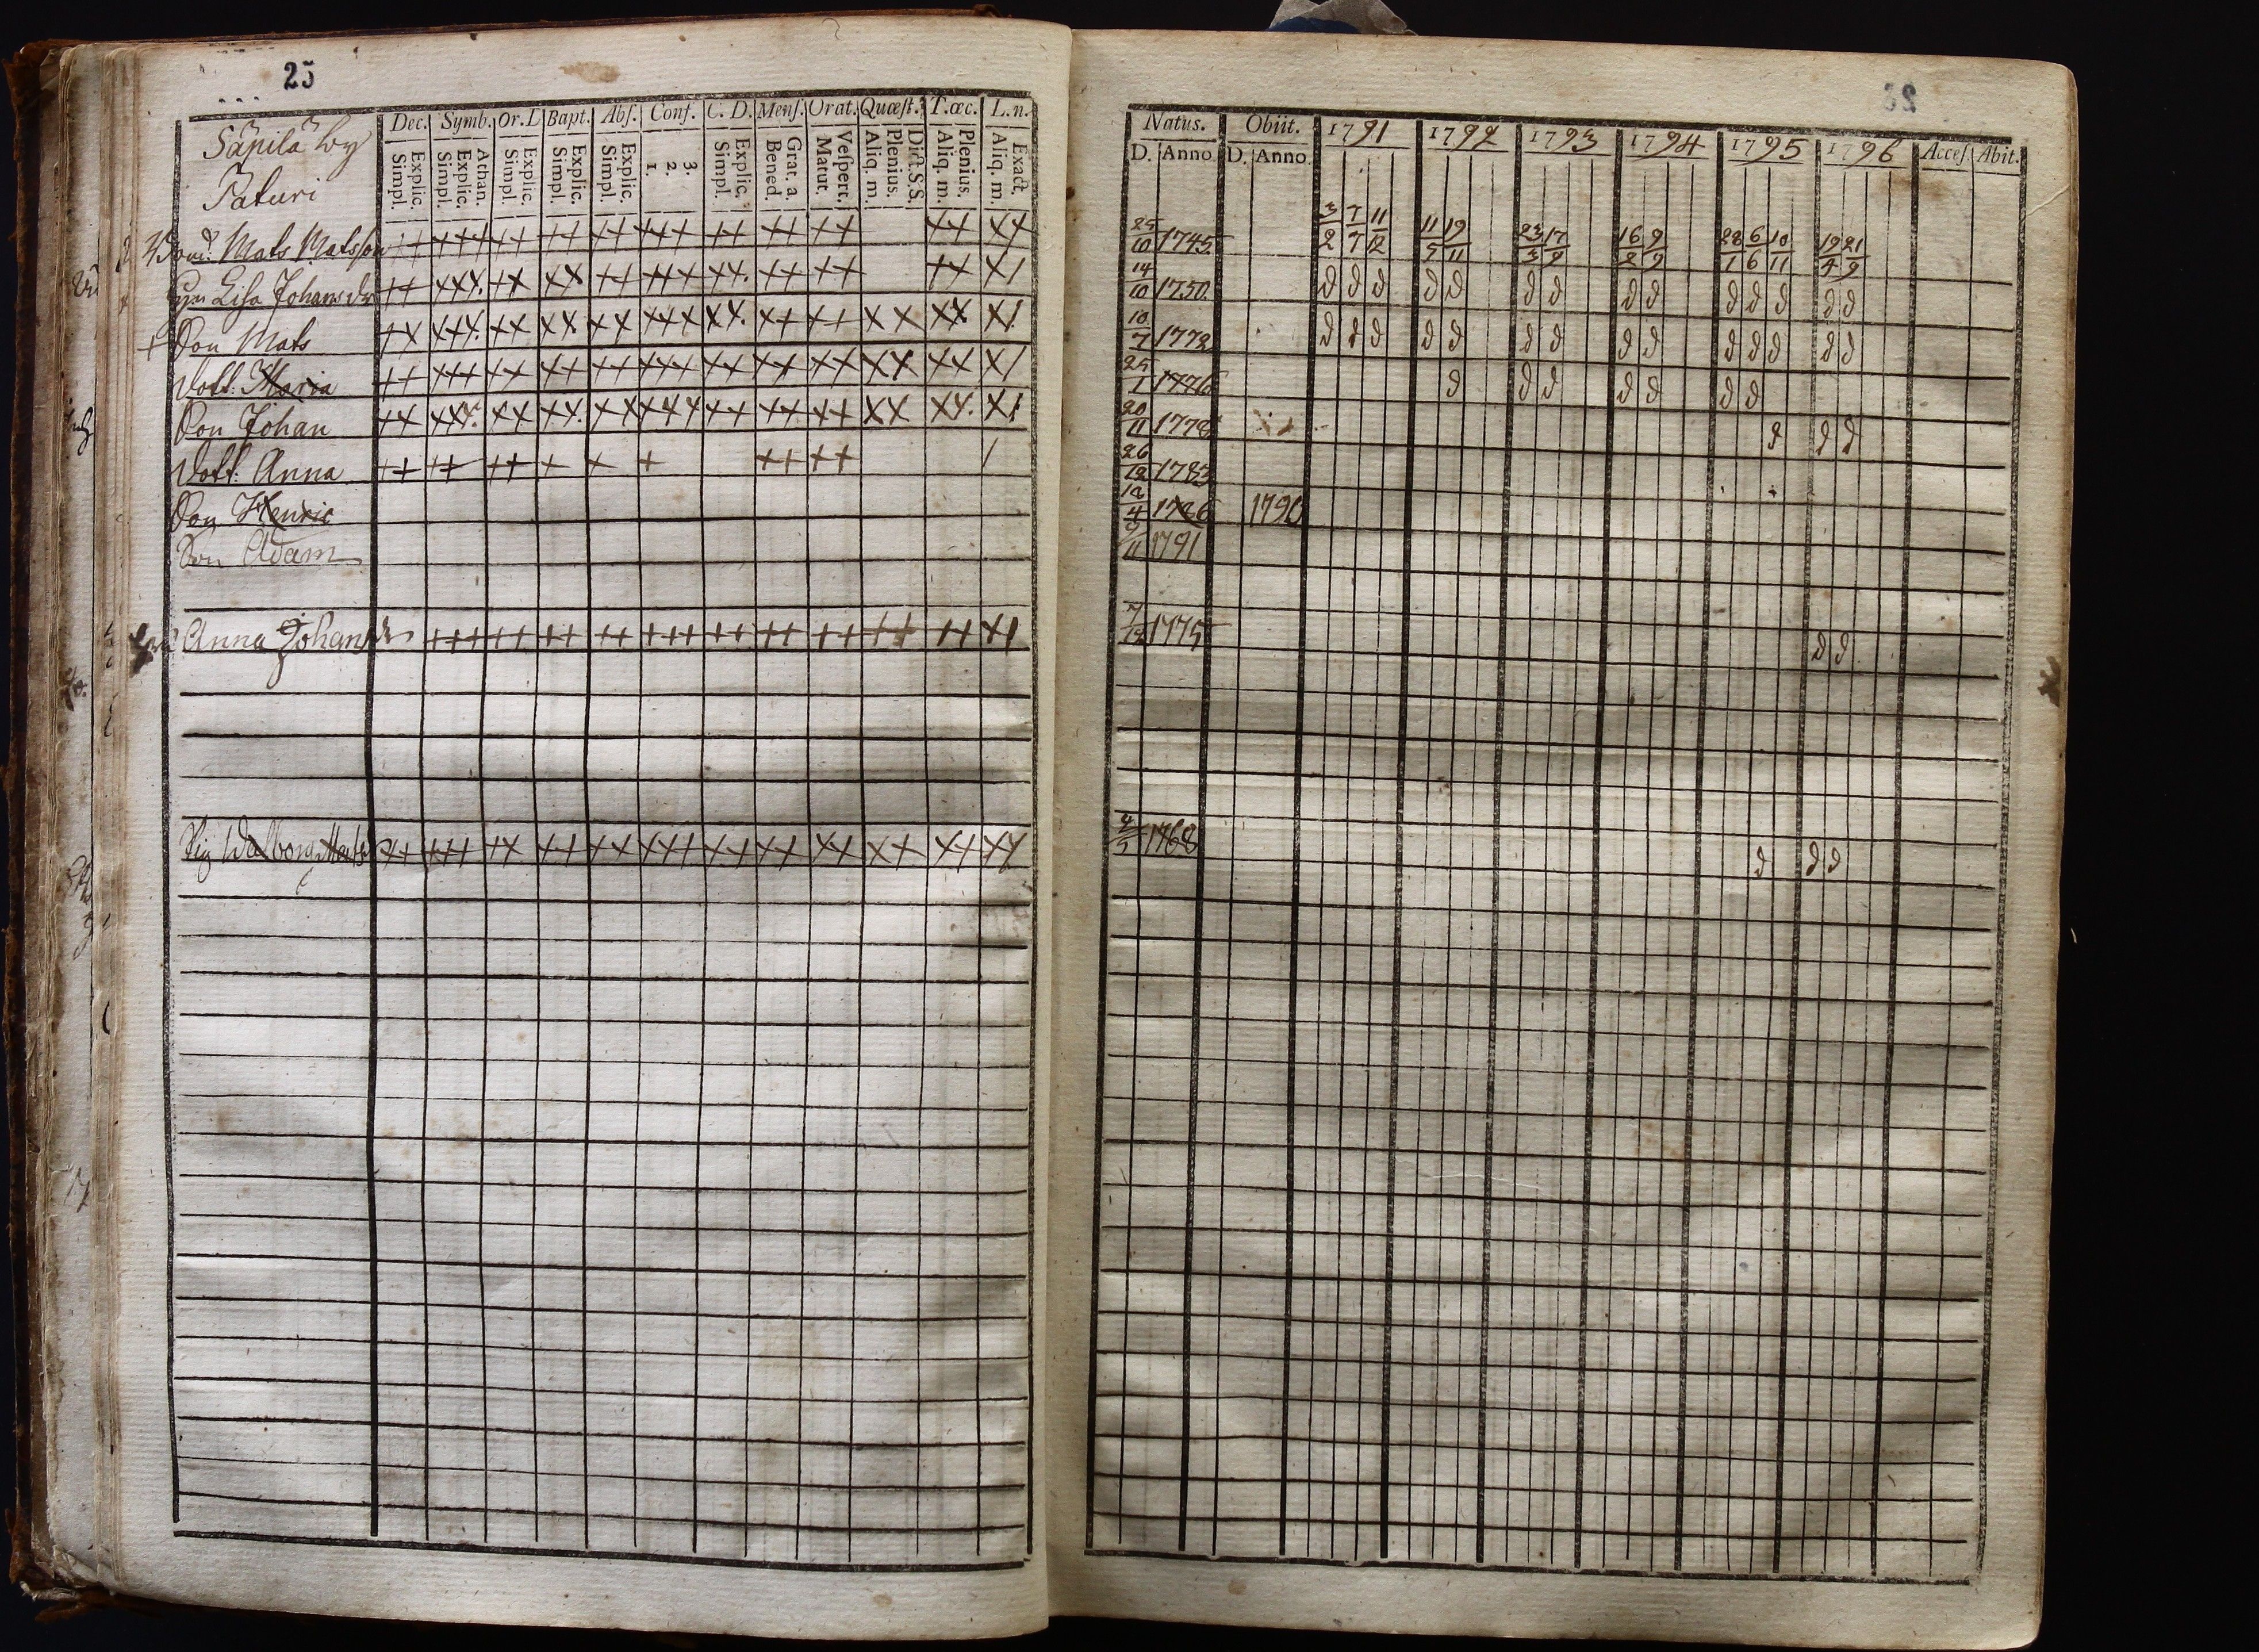 25
Dec. Symb. Or. D Bapt. Abs. Conf. C. D. Mens. Orat. Quæst. T.œc. L.n.
Explic. Simpl. Athan. Explic. Simpl. Explic. Simpl. Explic. Simpl. Explic. Simpl. 3. 2. 1. Explic. Simpl. Grat. a. Bened. Vespert. Matut. Dict. S.S. Plenius. Aliq. m. Plenius. Aliq. m. Exact. Aliq. m.
Säpilä by
Paturi
Mats Matsson ++ +++ ++ ++ ++ +++ ++ ++ ++ ++ ++
Lisa Johansdr ++ +++ ++ ++ ++ +++ ++ ++ ++ ++ +/
Son Mats ++ +++ ++ ++ ++ +++ ++ ++ ++ ++ ++ +/
Dott. Maria ++ +++ ++ ++ ++ +++ ++ ++ ++ ++ ++ +/
Son Johan ++ +++ ++ ++ ++ +++ ++ ++ ++ ++ ++ +/
Dott. Anna ++ ++ ++ + + + ++ ++ /
Son Henric
Son Adam
Anna Johansdr +++ ++ ++ ++ +++ ++ ++ ++ ++ ++ +/
Pig Walborg Matsd ++ +++ ++ ++ ++ +++ ++ ++ ++ ++ ++ ++
Natus. Obiit. 1791 1792 1793 1794 1795 1796 Acces. Abit.
D. Anno D. Anno
25/10 1745 3/2 7/7 11/12 11/5 19/11 23/3 17/9 16/2 9/9 28/1 6/6 10/11 19/4 21/9
14/10 1750 d d d d d d d d d d d d d d
10/7 1772 d d d d d d d d d d d d d d
25/1 1776 d d d d d d d
20/11 1778 d d d
26/12 1783
12/4 1786 1790
9/11 1791
7/12 1775 d d
4/5 1768 d d d